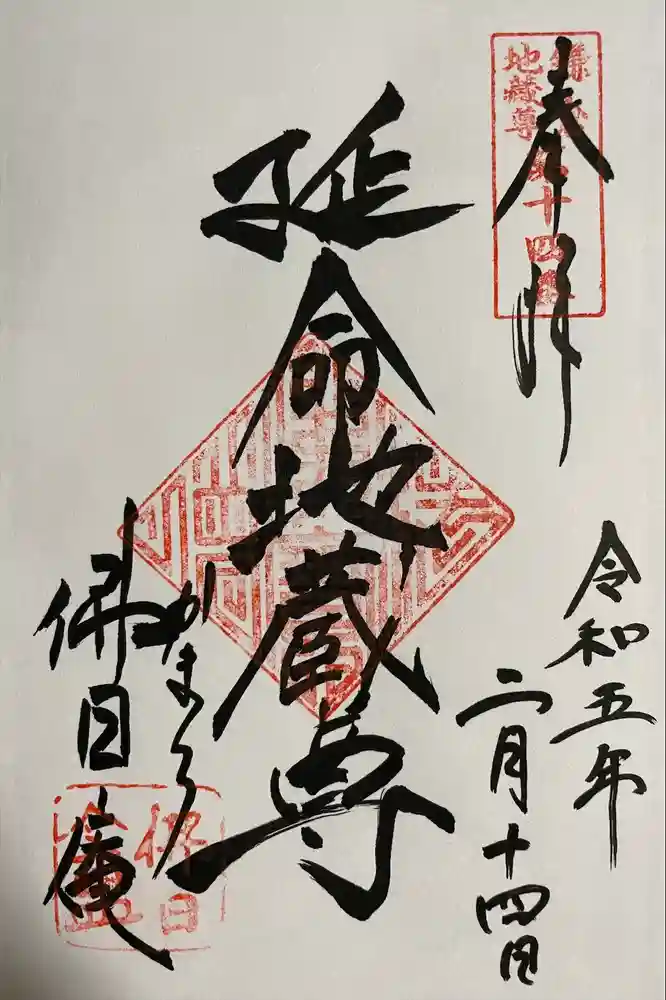 奉拝
鎌倉第十四番
地蔵尊
令和五年
二月十四日
延命地蔵尊
かまくら
佛日庵
佛日